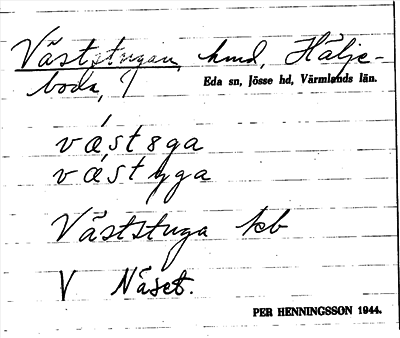 Väststugan, hmd, Hälje-
boda, /
Eda sn, Jösse hd, Värmlands län.
västsga
västyga
Väststuga kb
V Näset.
PER HENNINGSSON 1944.